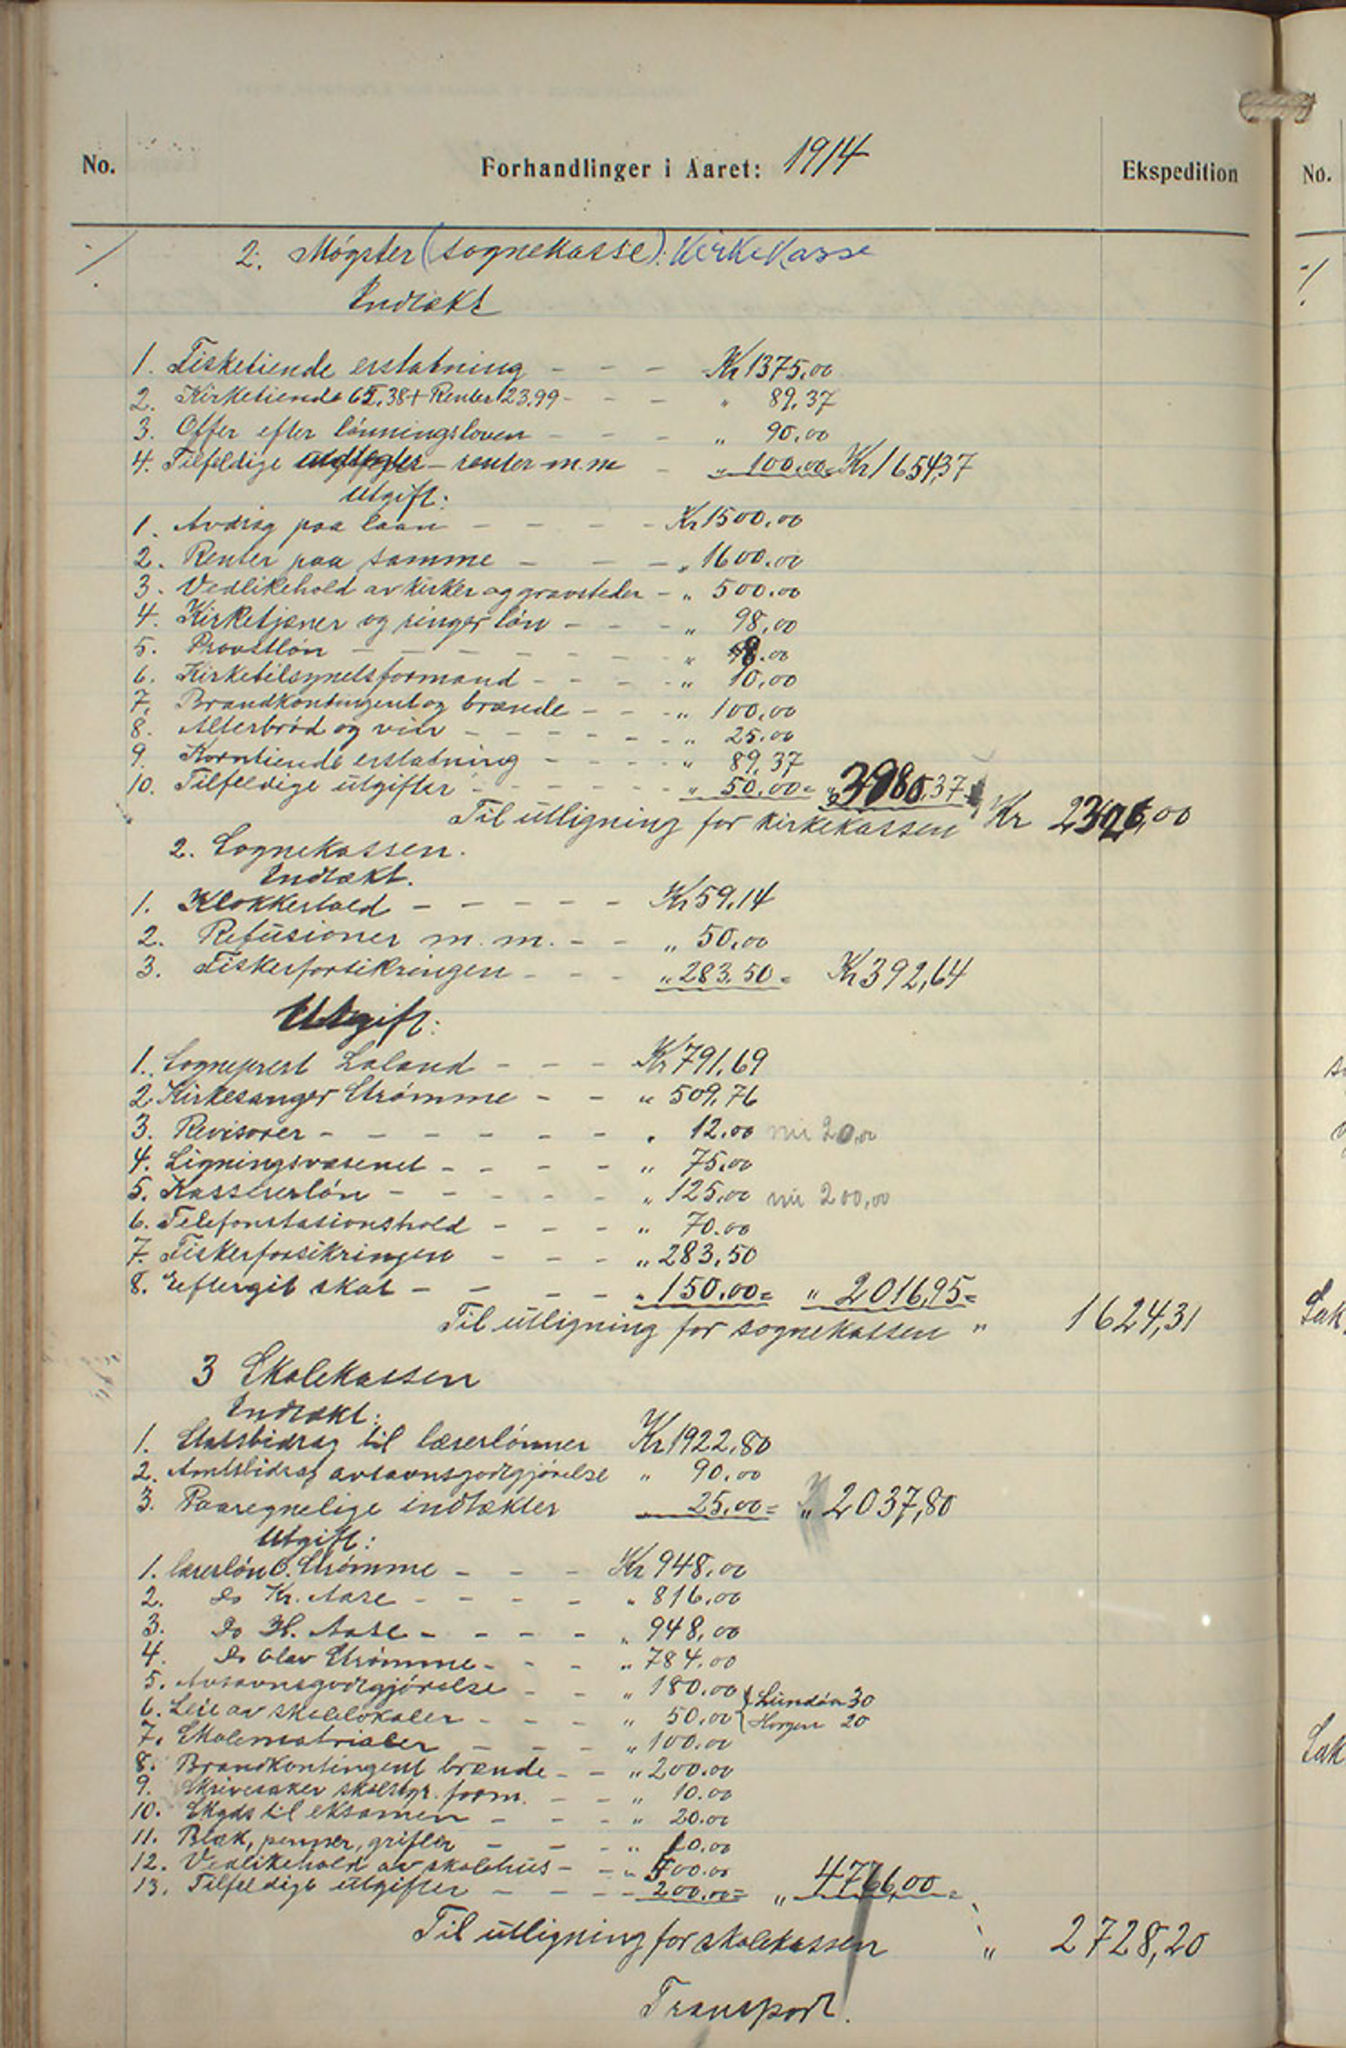 No. Forhandlinger i Aaret: 1914 Ekspedition No.
2. Møgster (sognekasse): Kirkekasse
Indtækt
1. Fisketiende erstatning - - - Kr 1375,00
2. Kirketiende 65.38 + Renter 23.99 - - - " 89,37
3. Offer efter lønningsloven - - - " 90,00
4. Tilfeldige renter m.m - " 100,00 = Kr 1654,37
Utgift:
1. Avdrag paa laan - - - - Kr 1500,00
2. Renter paa samme - - - " 1600,00
3. Vedlikehold av kirker og gravsteder - " 500,00
4. Kirketjener og ringer løn - - - " 98,00
5. Provstløn - - - - - - " 8.00
6. Kirketilsynetsformand - - - - " 10,00
7. Brandkontingent og brænde - - - " 100,00
8. Alterbrød og vin - - - - - - " 25.00
9. Korntiende erstatning - - - - " 89,37
10. Tilfeldige utgifter - - - - - - " 50,00 = " 3980,37
Til utligning for kirkekassen Kr 2326,00
2. Sognekassen.
Indtækt.
1. Klokkertold - - - - - Kr 59,14
2. Refusioner m.m. - - " 50,00
3. Fiskerforsikringen - - - " 283,50 = Kr 392,64
Utgift:
1. Sogneprest Laland - - - Kr 791,69
2. Kirkesanger Strømme - - " 509,76
3. Revisorer - - - - - - " 12.00 ny 20,00
4. Ligningsvæsenet - - - - " 75,00
5. Kassererløn - - - - - " 125,00 ny 200,00
6. Telefonstasionshold - - - " 70.00
7. Fiskerforsikringen - - - " 283,50
8. Eftergit skat - - - - " 150.00 = " 2016,95 =
Til utligning for sognekassen " 1624,31
3 Skolekassen
Indtækt:
1. Statsbidrag til lærerlønner Kr 1922,80
2. Amtsbidrag avsavnsgodtgjørelse " 90,00
3. Paaregnelige indtækter " 25,00 = " 2037,80
Utgift:
1. lærerløn O. Strømme - - - Kr 948,00
2. Do Kr. Aase - - - - " 816,00
3. Do H. Aase - - - - " 948,00
4. Do Olav Strømme - - - " 784.00
5. Avsavnsgodtgjørelse - - " 180.00
6. Leie av skolelokaler - - - " 50,00 { Lundøn 30
Horgen 20
7. Skolematrialer - - - " 100.00
8. Brandkontingent brænde - - " 200.00
9. Skrivesaker skolstyr. form. - - " 10.00
10. Skyds til eksamen - - - " 20.00
11. Blæk, penner, grifler - - - " 10.00
12. Vedlikehold av skolehus - - " 500.00
13. Tilfeldige utgifter - - - - 200,00 = " 4766,00 =
Til utligning for skolekassen " 2728,20
Transport.